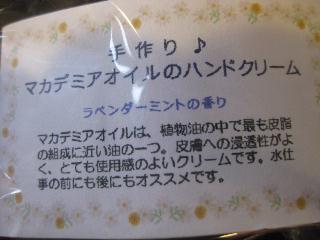 手作り♪
マカデミアオイルのハンドクリーム
ラベンダーミントの香り
マカデミアオイルは、植物油の中で最も皮脂
の組成に近い油の一つ。皮膚への浸透性がよ
く、とても使用感のよいクリームです。水仕
事の前にも後にもオススメです。